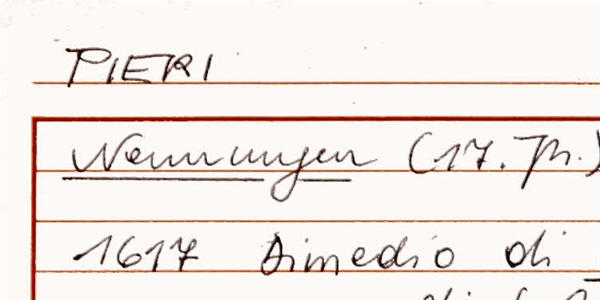 PIERI
Nennungen (17. Jh.)
1617 Dimedio di
di